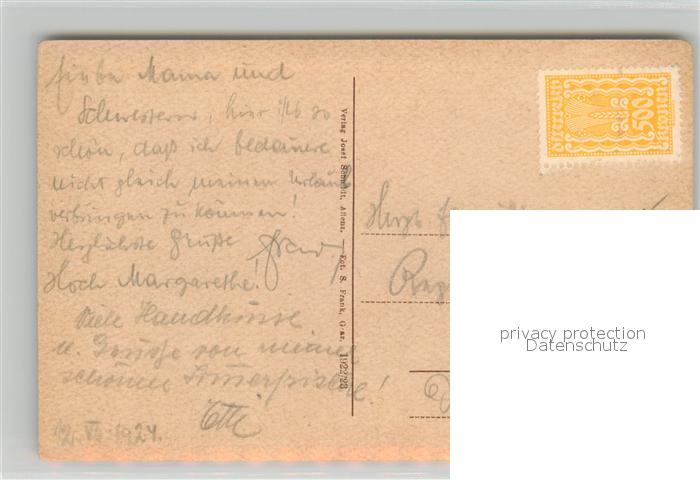 Liebe Mama und
Schwestern, hier ist's so
schön, daß ich bedauere
nicht gleich meinen Urlaub
verbringen zu können!
Herzlichste Grüße
Hoch Margarethe!
Viele Handküsse
u. Grüsse von meiner
schönen
12. VI. 1924.
Verlag Josef Schmidt, Aflenz. — Fot. S. Frank, Graz. 1922/23.
österreich
500
kronen
privacy protection
Datenschutz